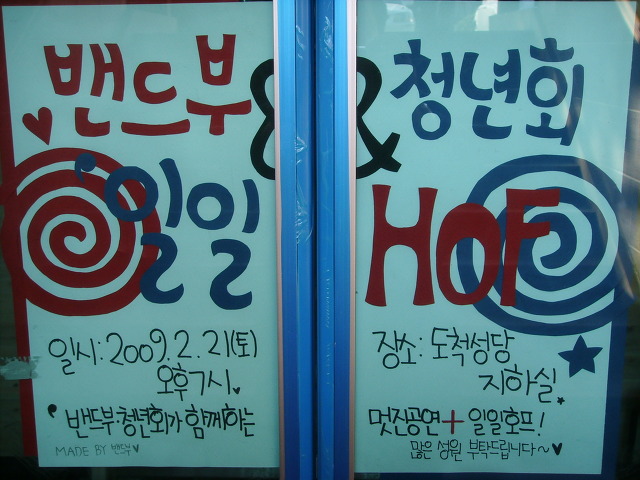 밴드부 & 청년회
'일일 HOF
일시: 2009.2.21(토)
오후7시
장소: 도척성당
지하실
'밴드부청년회가 함께하는
멋진공연+일일호프!
많은 성원 부탁드립니다~♥
MADE BY 밴드부♥